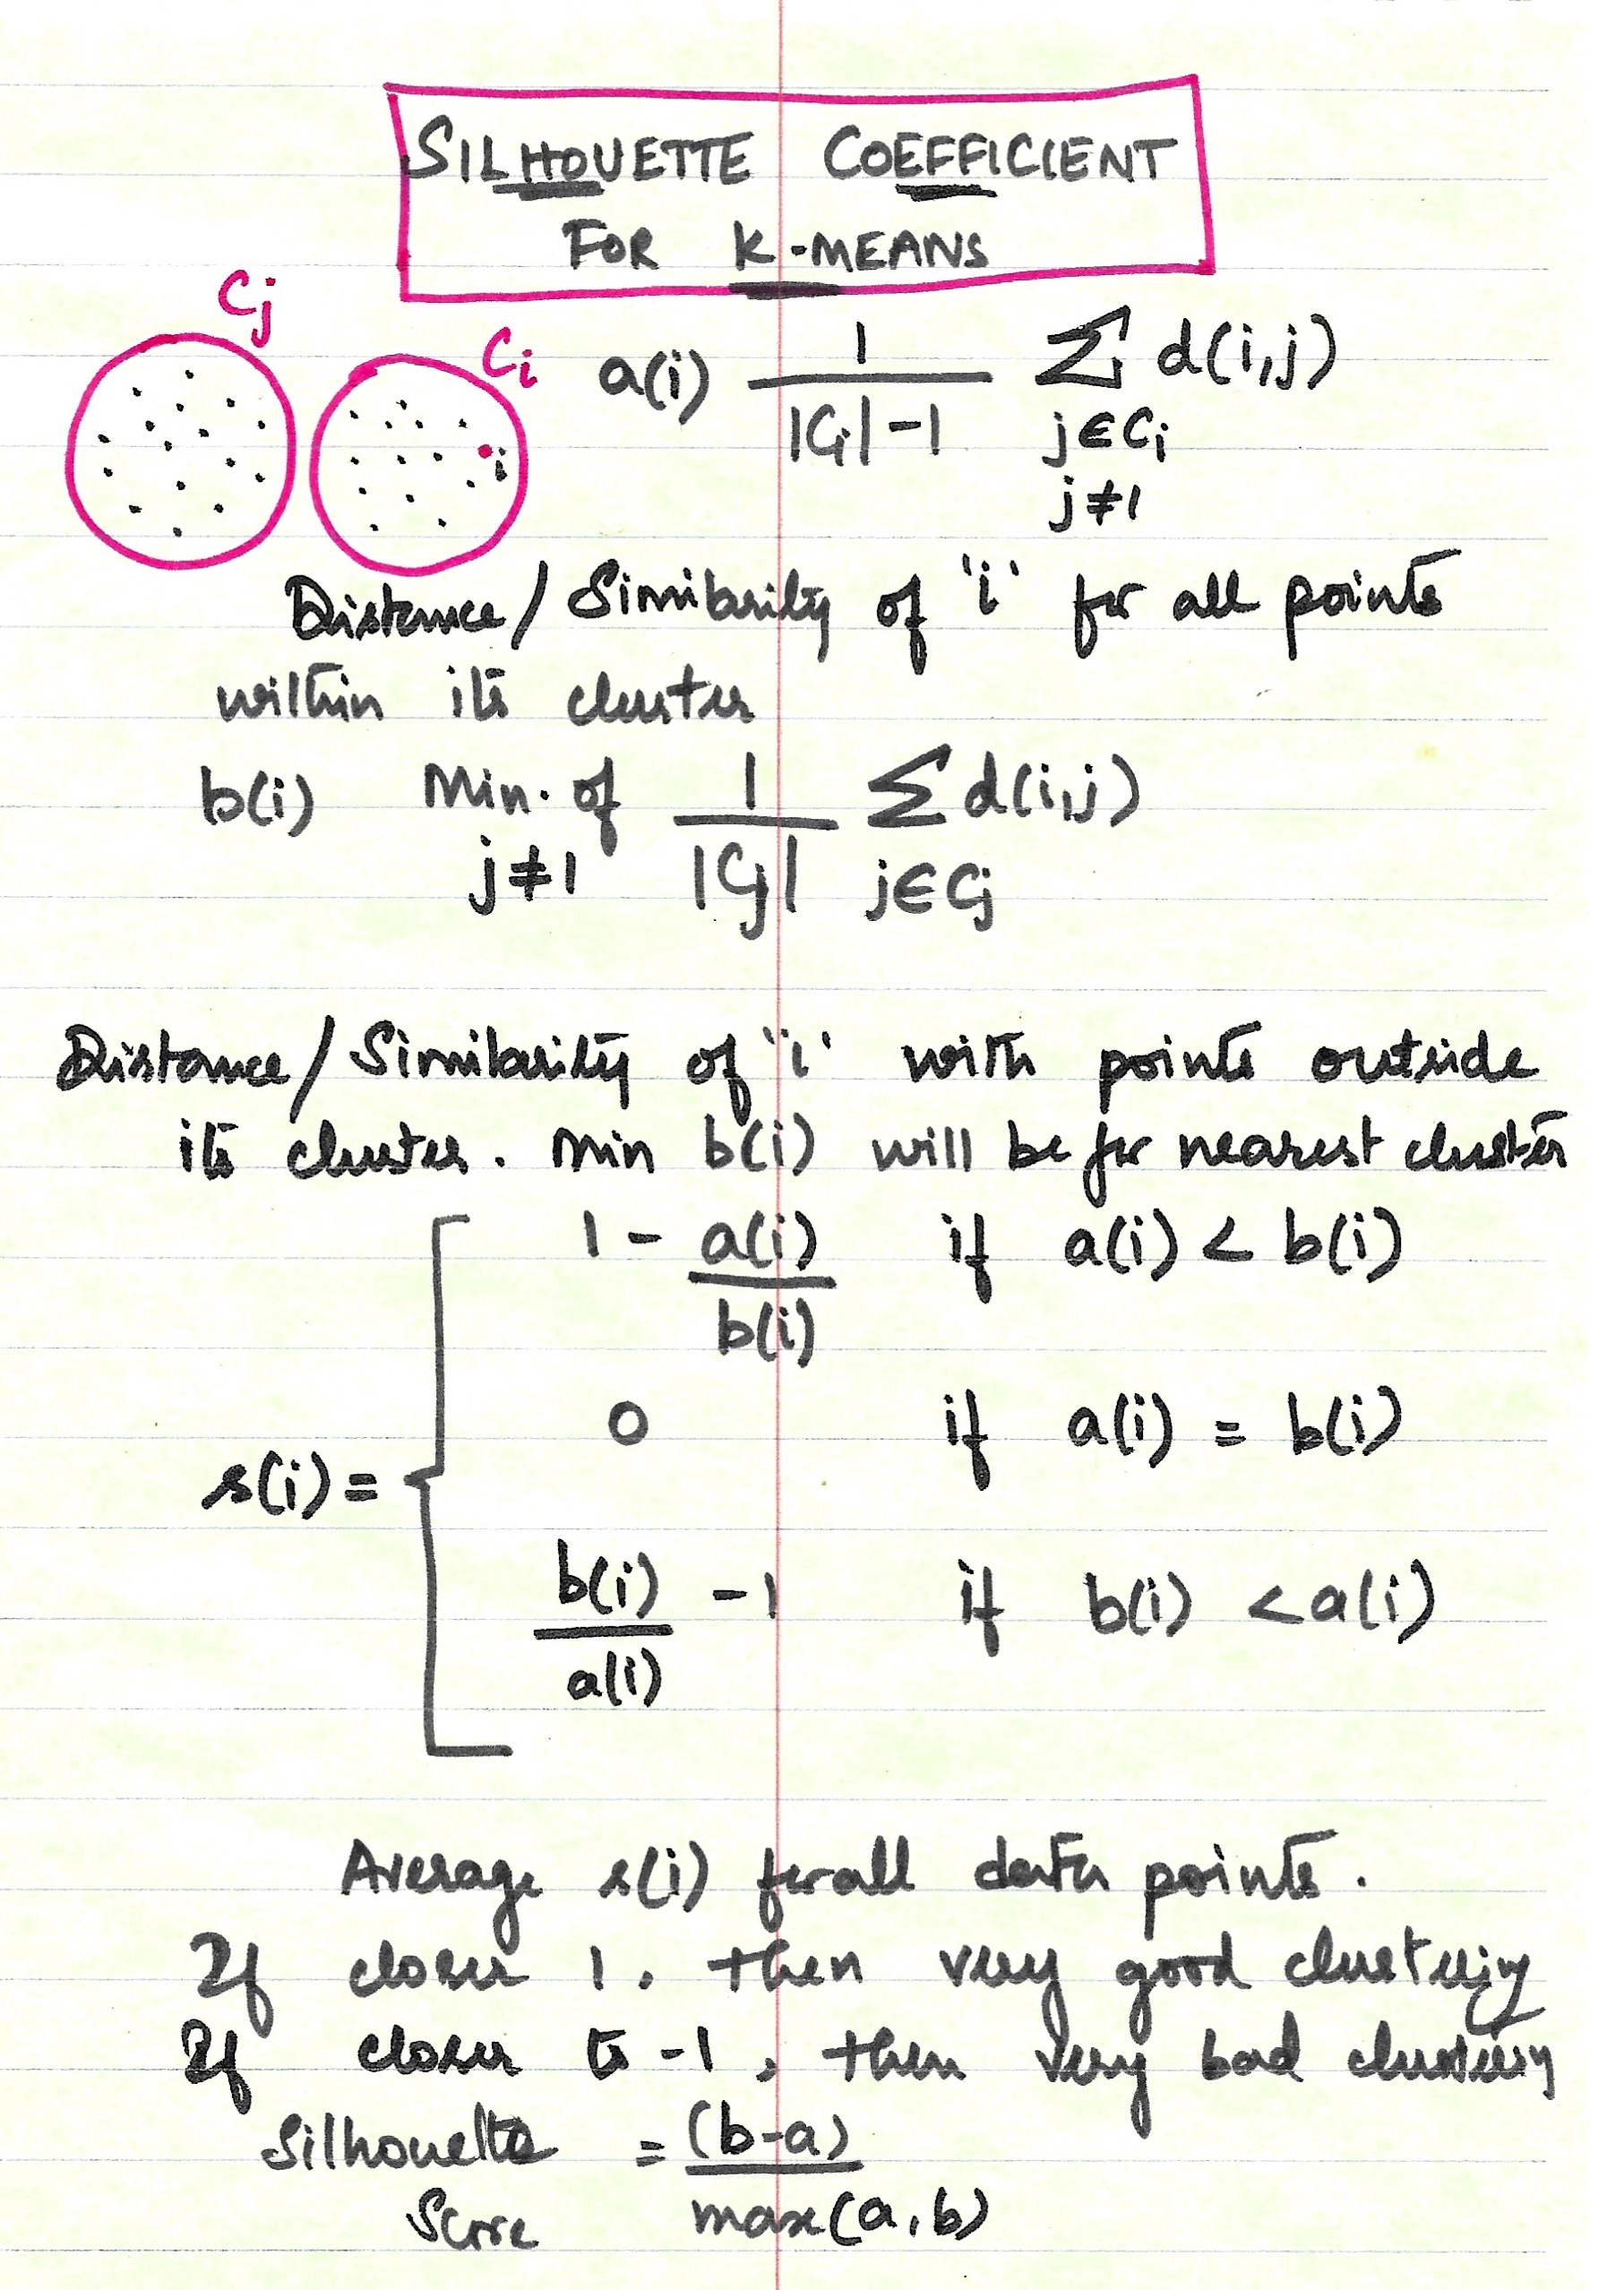 SILHOUETTE COEFFICIENT
FOR K-MEANS
Cj
Ci
i
a(i) 1 / |Ci| - 1 Σ d(i,j)
j∈Ci
j≠1
Distance/Similarity of 'i' for all points
within its cluster
b(i) Min. of 1 / |Cj| Σ d(i,j)
j≠1 j∈Cj
Distance/Similarity of 'i' with points outside
its cluster. Min b(i) will be for nearest cluster
s(i) =
1 - a(i) / b(i) if a(i) < b(i)
0 if a(i) = b(i)
b(i) / a(i) - 1 if b(i) < a(i)
Average s(i) for all data points.
If closer 1, then very good clustering
If closer to -1, then very bad clustering
Silhouette = (b-a) / max(a,b)
Score